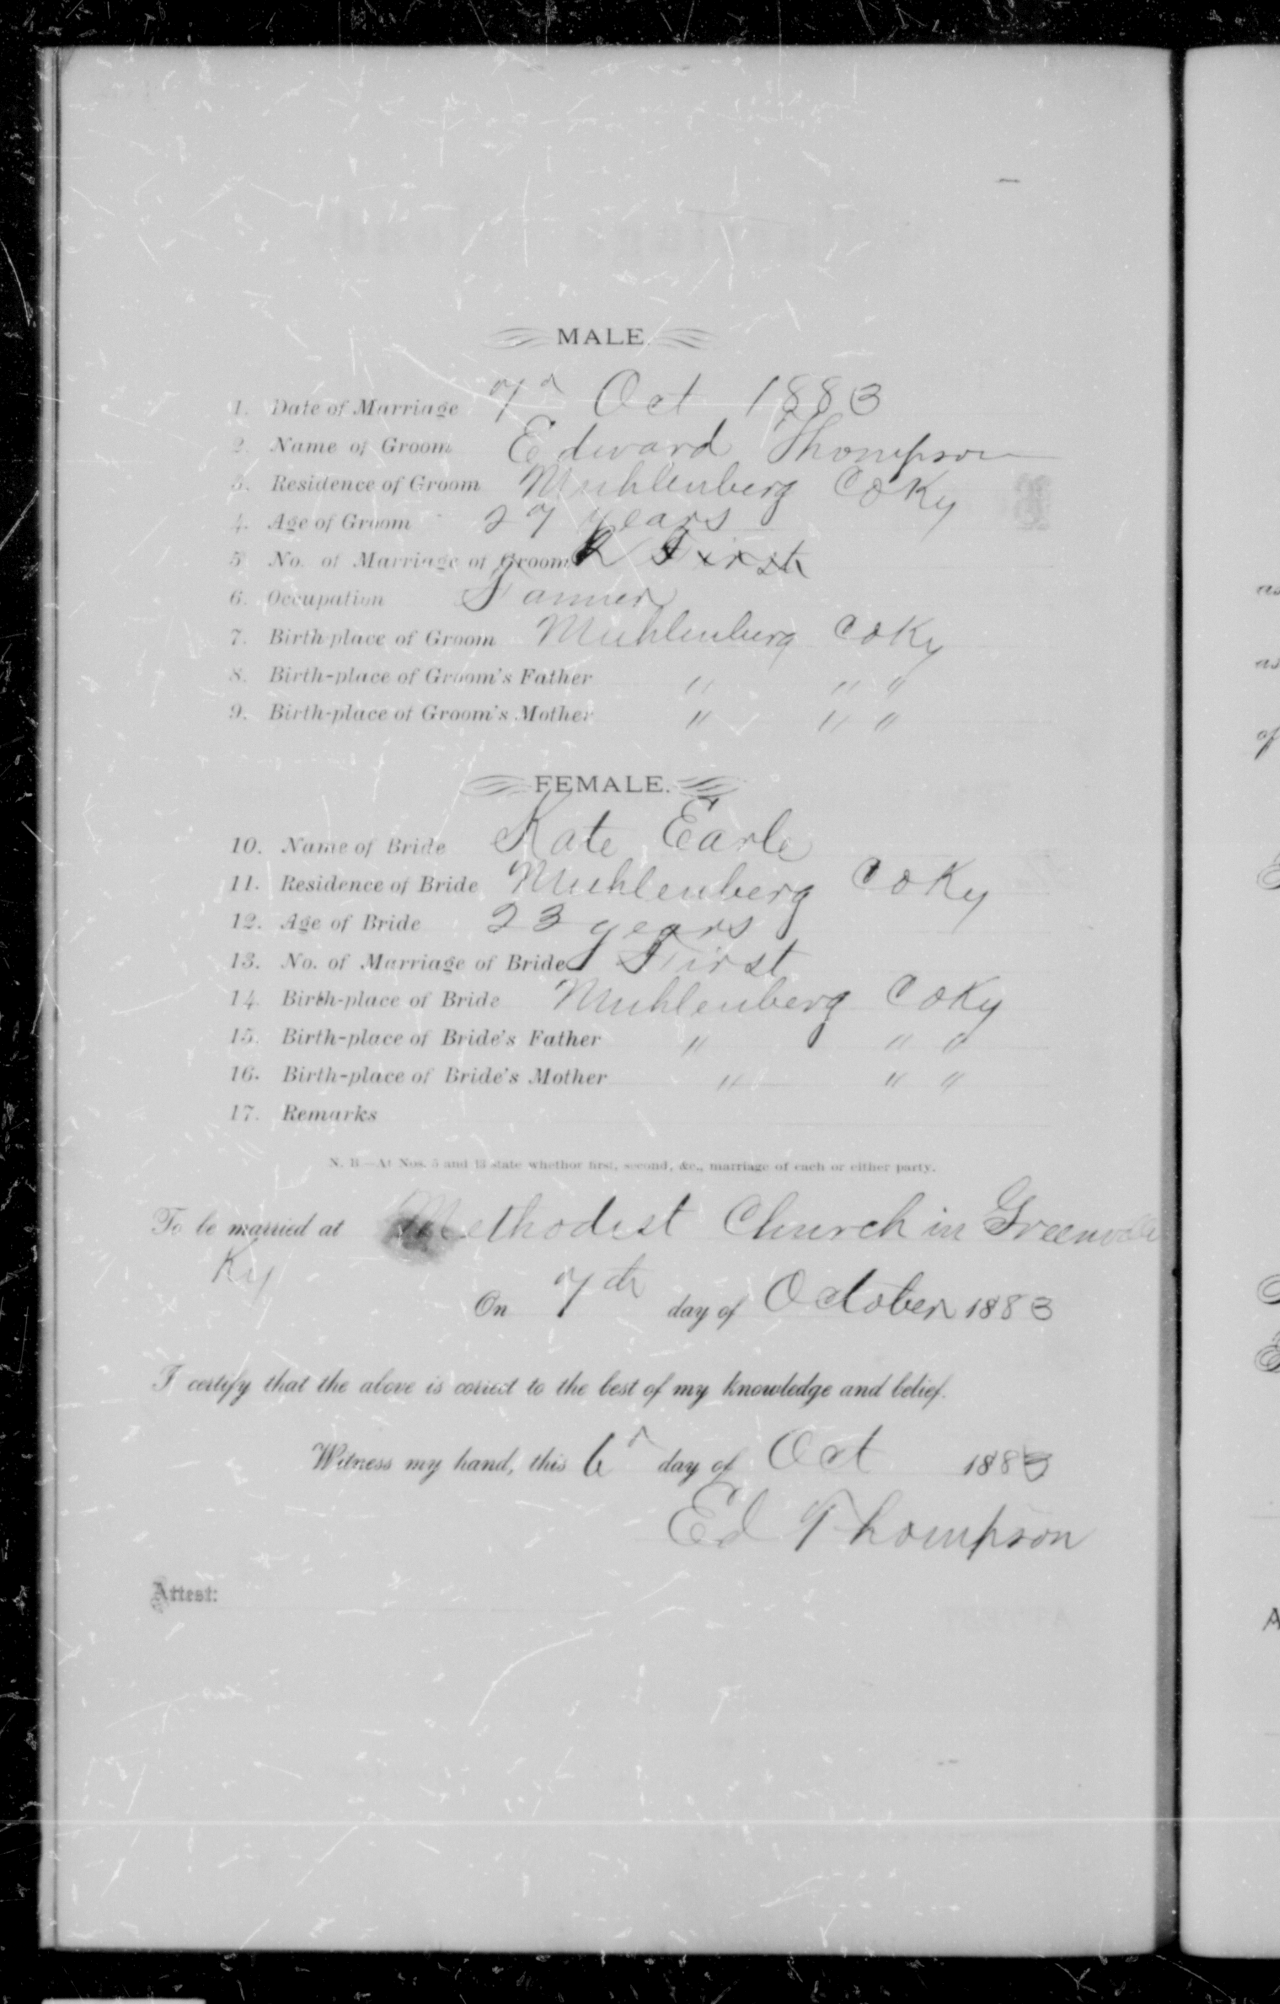 MALE.
1. Date of Marriage 7th Oct 1883
2. Name of Groom Edward Thompson
3. Residence of Groom Muhlenberg Co Ky
4. Age of Groom 27 years
5 No. of Marriage of Groom First
6. Occupation
7. Birth-place of Groom Muhlenberg Co Ky
8. Birth-place of Groom's Father " " "
9. Birth-place of Groom's Mother " " "
FEMALE.
10. Name of Bride Kate Earle
11. Residence of Bride Muhlenberg Co Ky
12. Age of Bride 23 years
13. No. of Marriage of Bride First
14 Birth-place of Bride Muhlenberg Co Ky
15. Birth-place of Bride's Father " " "
16. Birth-place of Bride's Mother " " "
17. Remarks
N. B.—At Nos. 5 and 13 state whether first, second, &c., marriage of each or either party.
To be married at Methodist Church in Greenville
Ky
On 7th day of October 1883
I certify that the above is correct to the best of my knowledge and belief.
Witness my hand, this 6th day of Oct 1883
Ed Thompson
Attest: